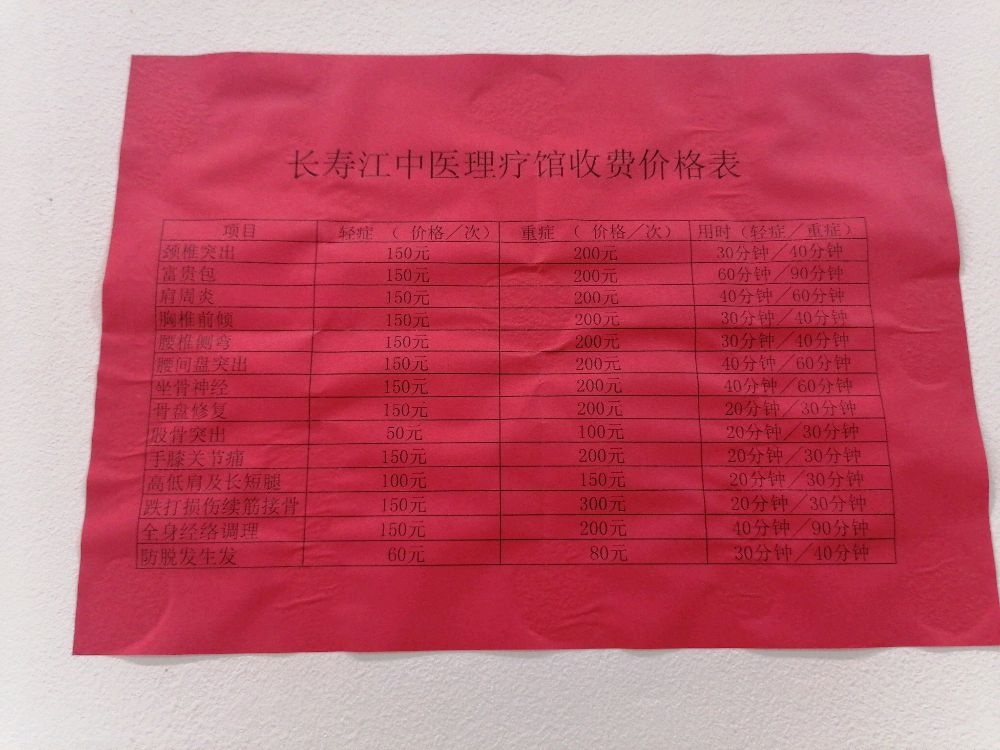 长寿江中医理疗馆收费价格表
项目 轻症 （ 价格／次） 重症 （ 价格／次） 用时（轻症／重症）
颈椎突出 150元 200元 30分钟／40分钟
富贵包 150元 200元 60分钟／90分钟
肩周炎 150元 200元 40分钟／60分钟
胸椎前倾 150元 200元 30分钟／40分钟
腰椎侧弯 150元 200元 30分钟／40分钟
腰间盘突出 150元 200元 40分钟／60分钟
坐骨神经 150元 200元 40分钟／60分钟
骨盘修复 150元 200元 20分钟／30分钟
股骨突出 50元 100元 20分钟／30分钟
手膝关节痛 150元 200元 20分钟／30分钟
高低肩及长短腿 100元 150元 20分钟／30分钟
跌打损伤续筋接骨 150元 300元 20分钟／30分钟
全身经络调理 150元 200元 40分钟／90分钟
防脱发生发 60元 80元 30分钟／40分钟